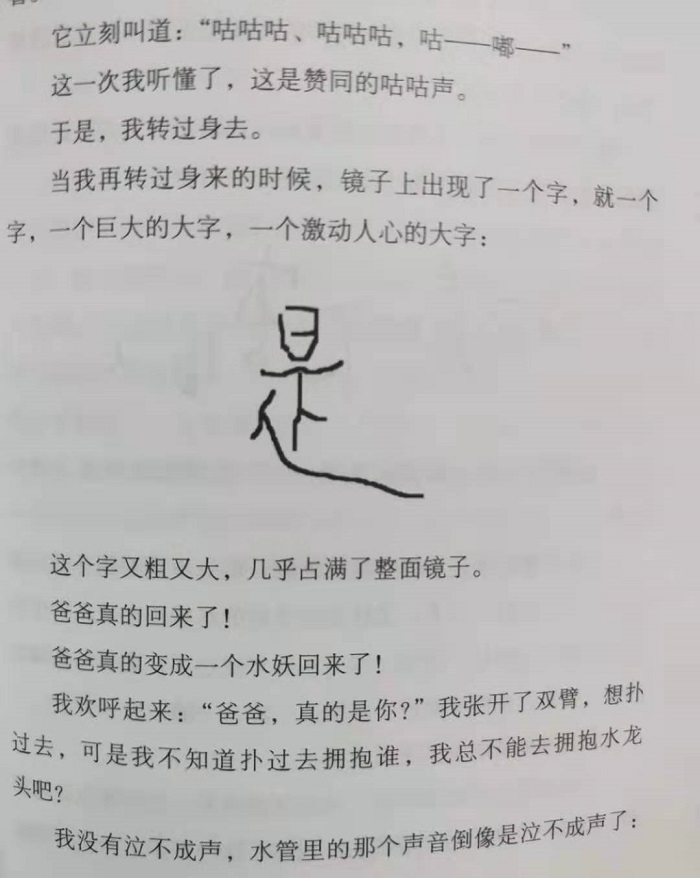 它立刻叫道：“咕咕咕、咕咕咕，咕——嘟——”
这一次我听懂了，这是赞同的咕咕声。
于是，我转过身去。
当我再转过身来的时候，镜子上出现了一个字，就一个
字，一个巨大的大字，一个激动人心的大字：
是
这个字又粗又大，几乎占满了整面镜子。
爸爸真的回来了！
爸爸真的变成一个水妖回来了！
我欢呼起来：“爸爸，真的是你？”我张开了双臂，想扑
过去，可是我不知道扑过去拥抱谁，我总不能去拥抱水龙
头吧？
我没有泣不成声，水管里的那个声音倒像是泣不成声了：